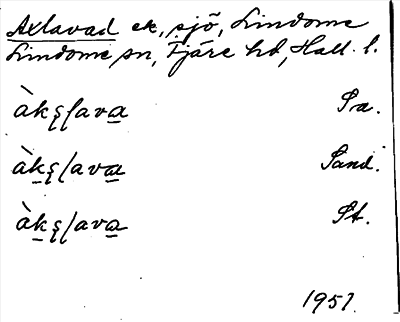 Axlavad ek, sjö, Lindome
Lindome sn, Fjäre hd, Hall. l.
àkʂlava Sa.
àkʂlava Sand.
àkʂlava St.
1951.